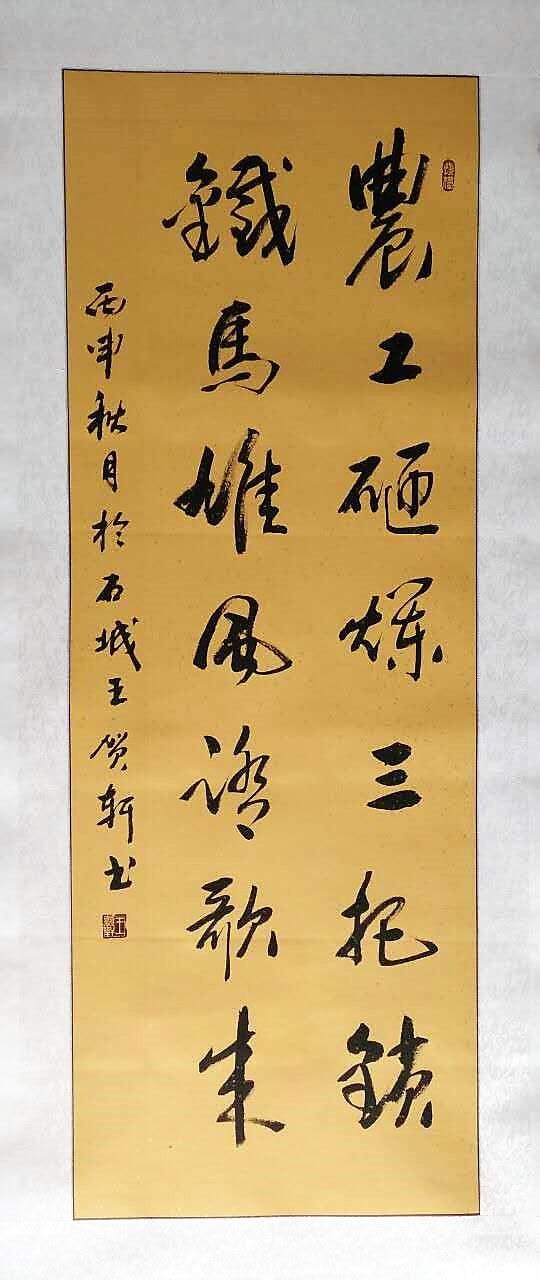 農工砸爛三把鎖
鐵馬雄風踏歌來
丙申秋月於石城王賀軒书